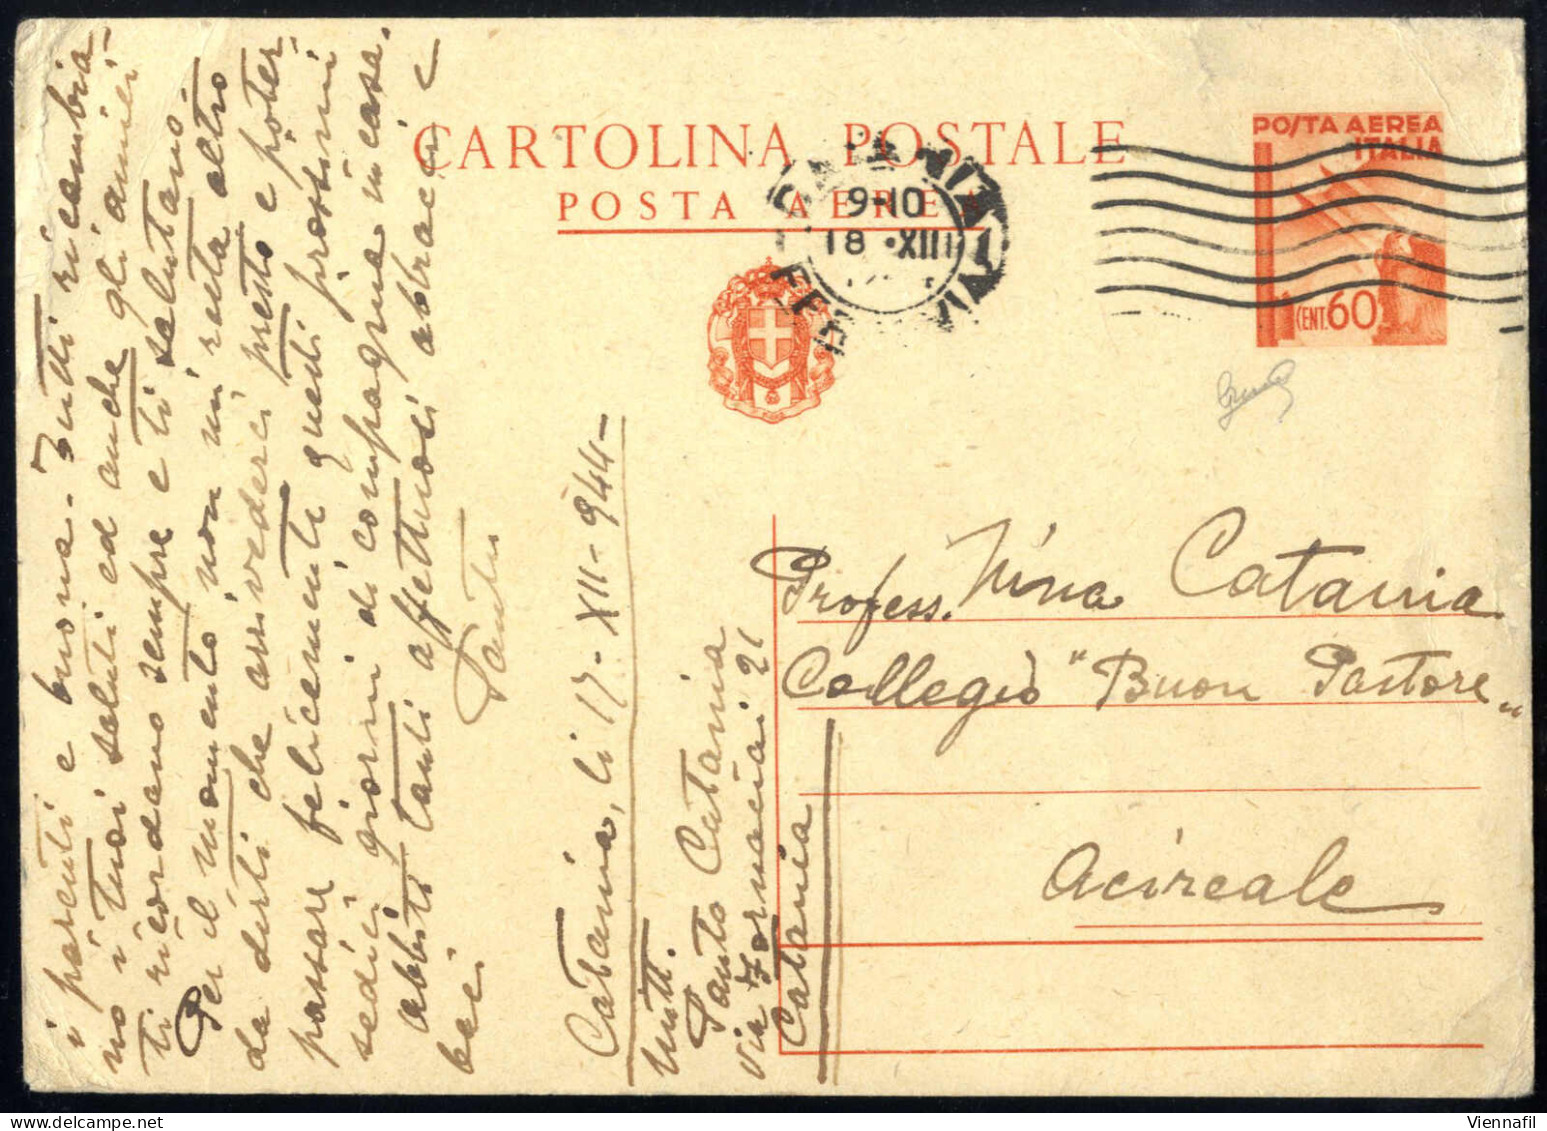 CARTOLINA POSTALE
POSTA AEREA
POSTA AEREA
ITALIA
CENT. 60
9-10
18 · XII
Profess. Nina Catania
Collegio "Buon Pastore"
Acireale
Mitt.
Santo Catania
via Fornaciai 21
Catania
Catania, li 17-XII-944-
i parenti e buona - Tutti ricambia-
no i tuoi saluti ed anche gli amici
ti ricordano sempre e ti salutano.
Per il momento non mi resta altro
da dirti che arrivederci presto e poter
passare felicemente questi prossimi
sedici giorni di compagnia in casa.
abbiti tanti affettuosi abbracci e
baci
Santo
Viennafil